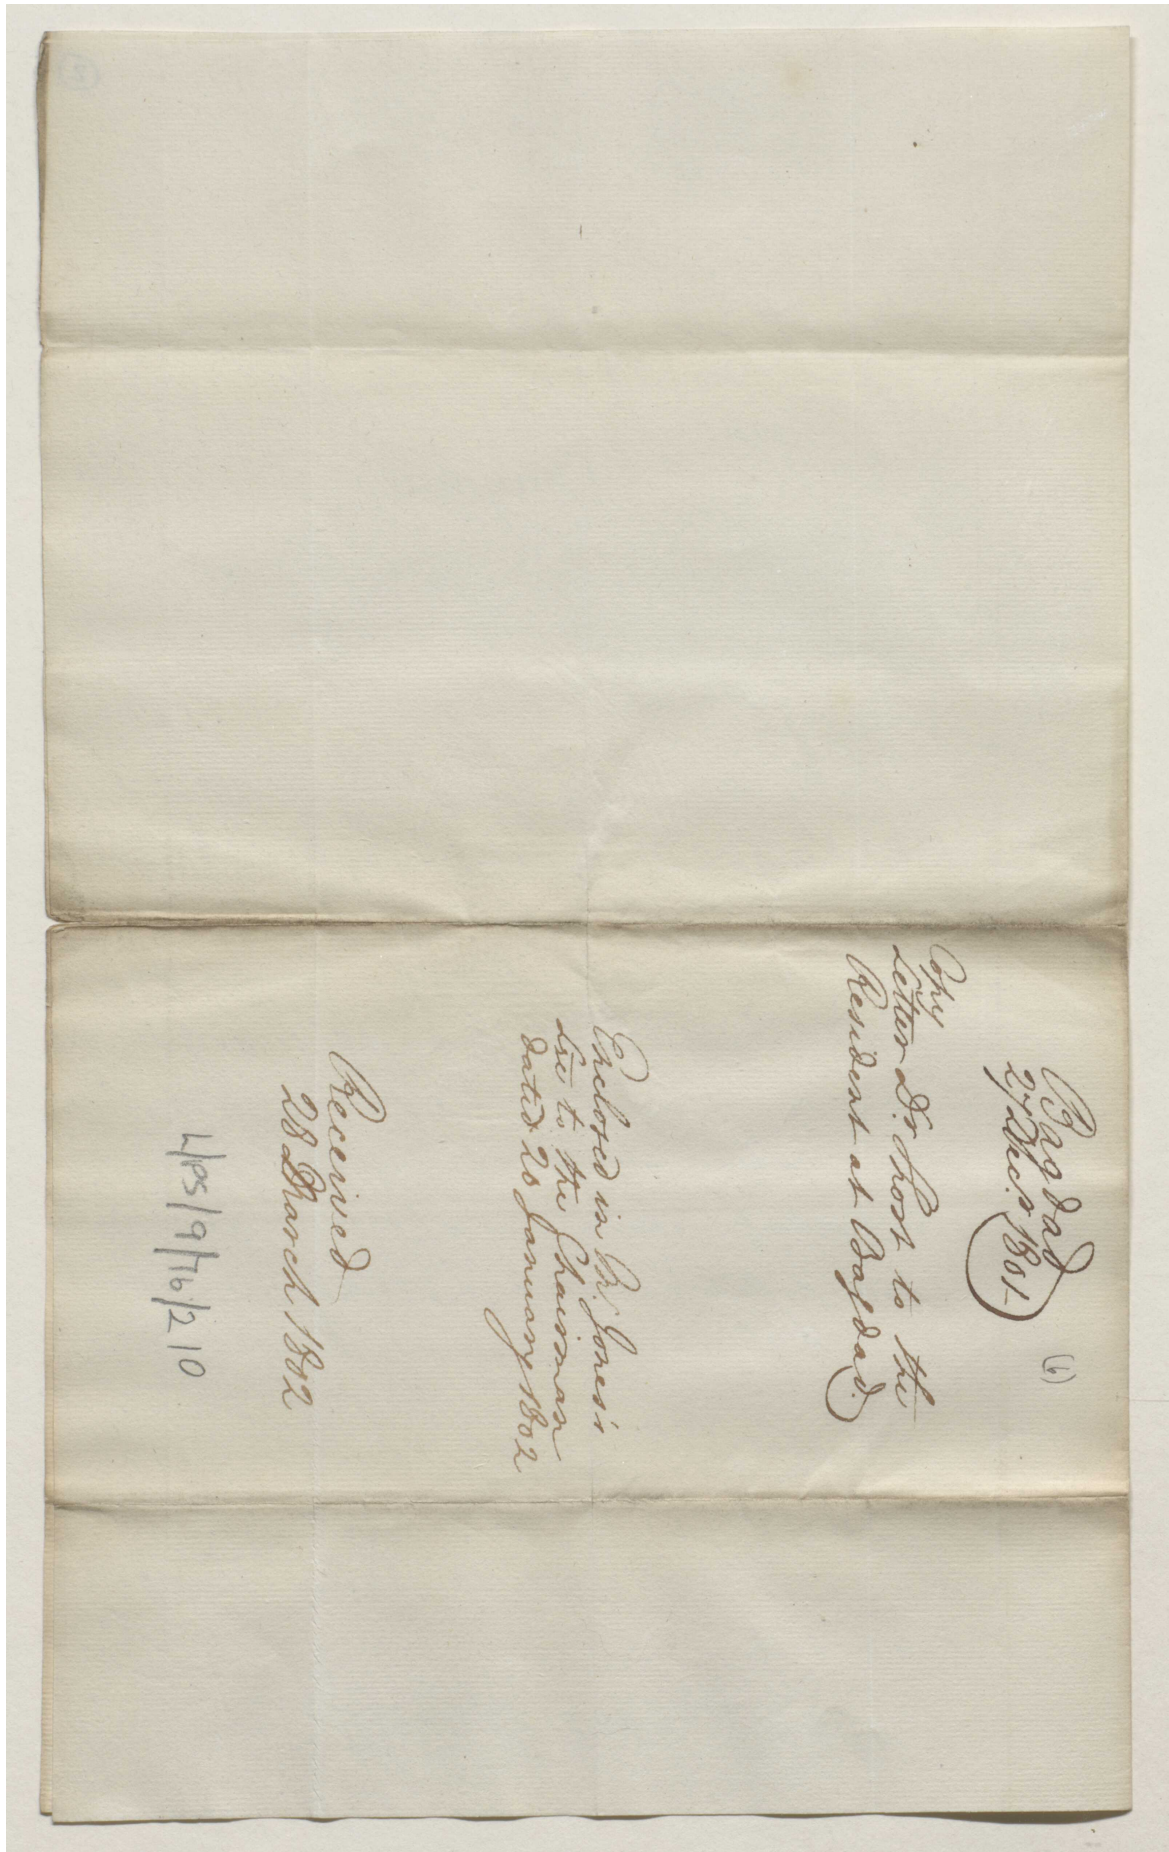 (6)
Bagdad
27 Decr. 1801
Copy
Letter Dr. Short to the
Resident at Bagdad.
Enclosed in Mr. Jones's
Lre to the Chairman
dated 26 January 1802
Received
28 March 1802
L/PS/9/76/210